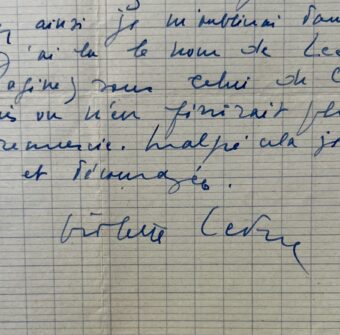 ainsi je m'oublierai dans
j'ai lu le nom de Led
sous celui de C
on n'en finirait pl
remercie. Malgré cela je
et découragée.
Violette Leduc